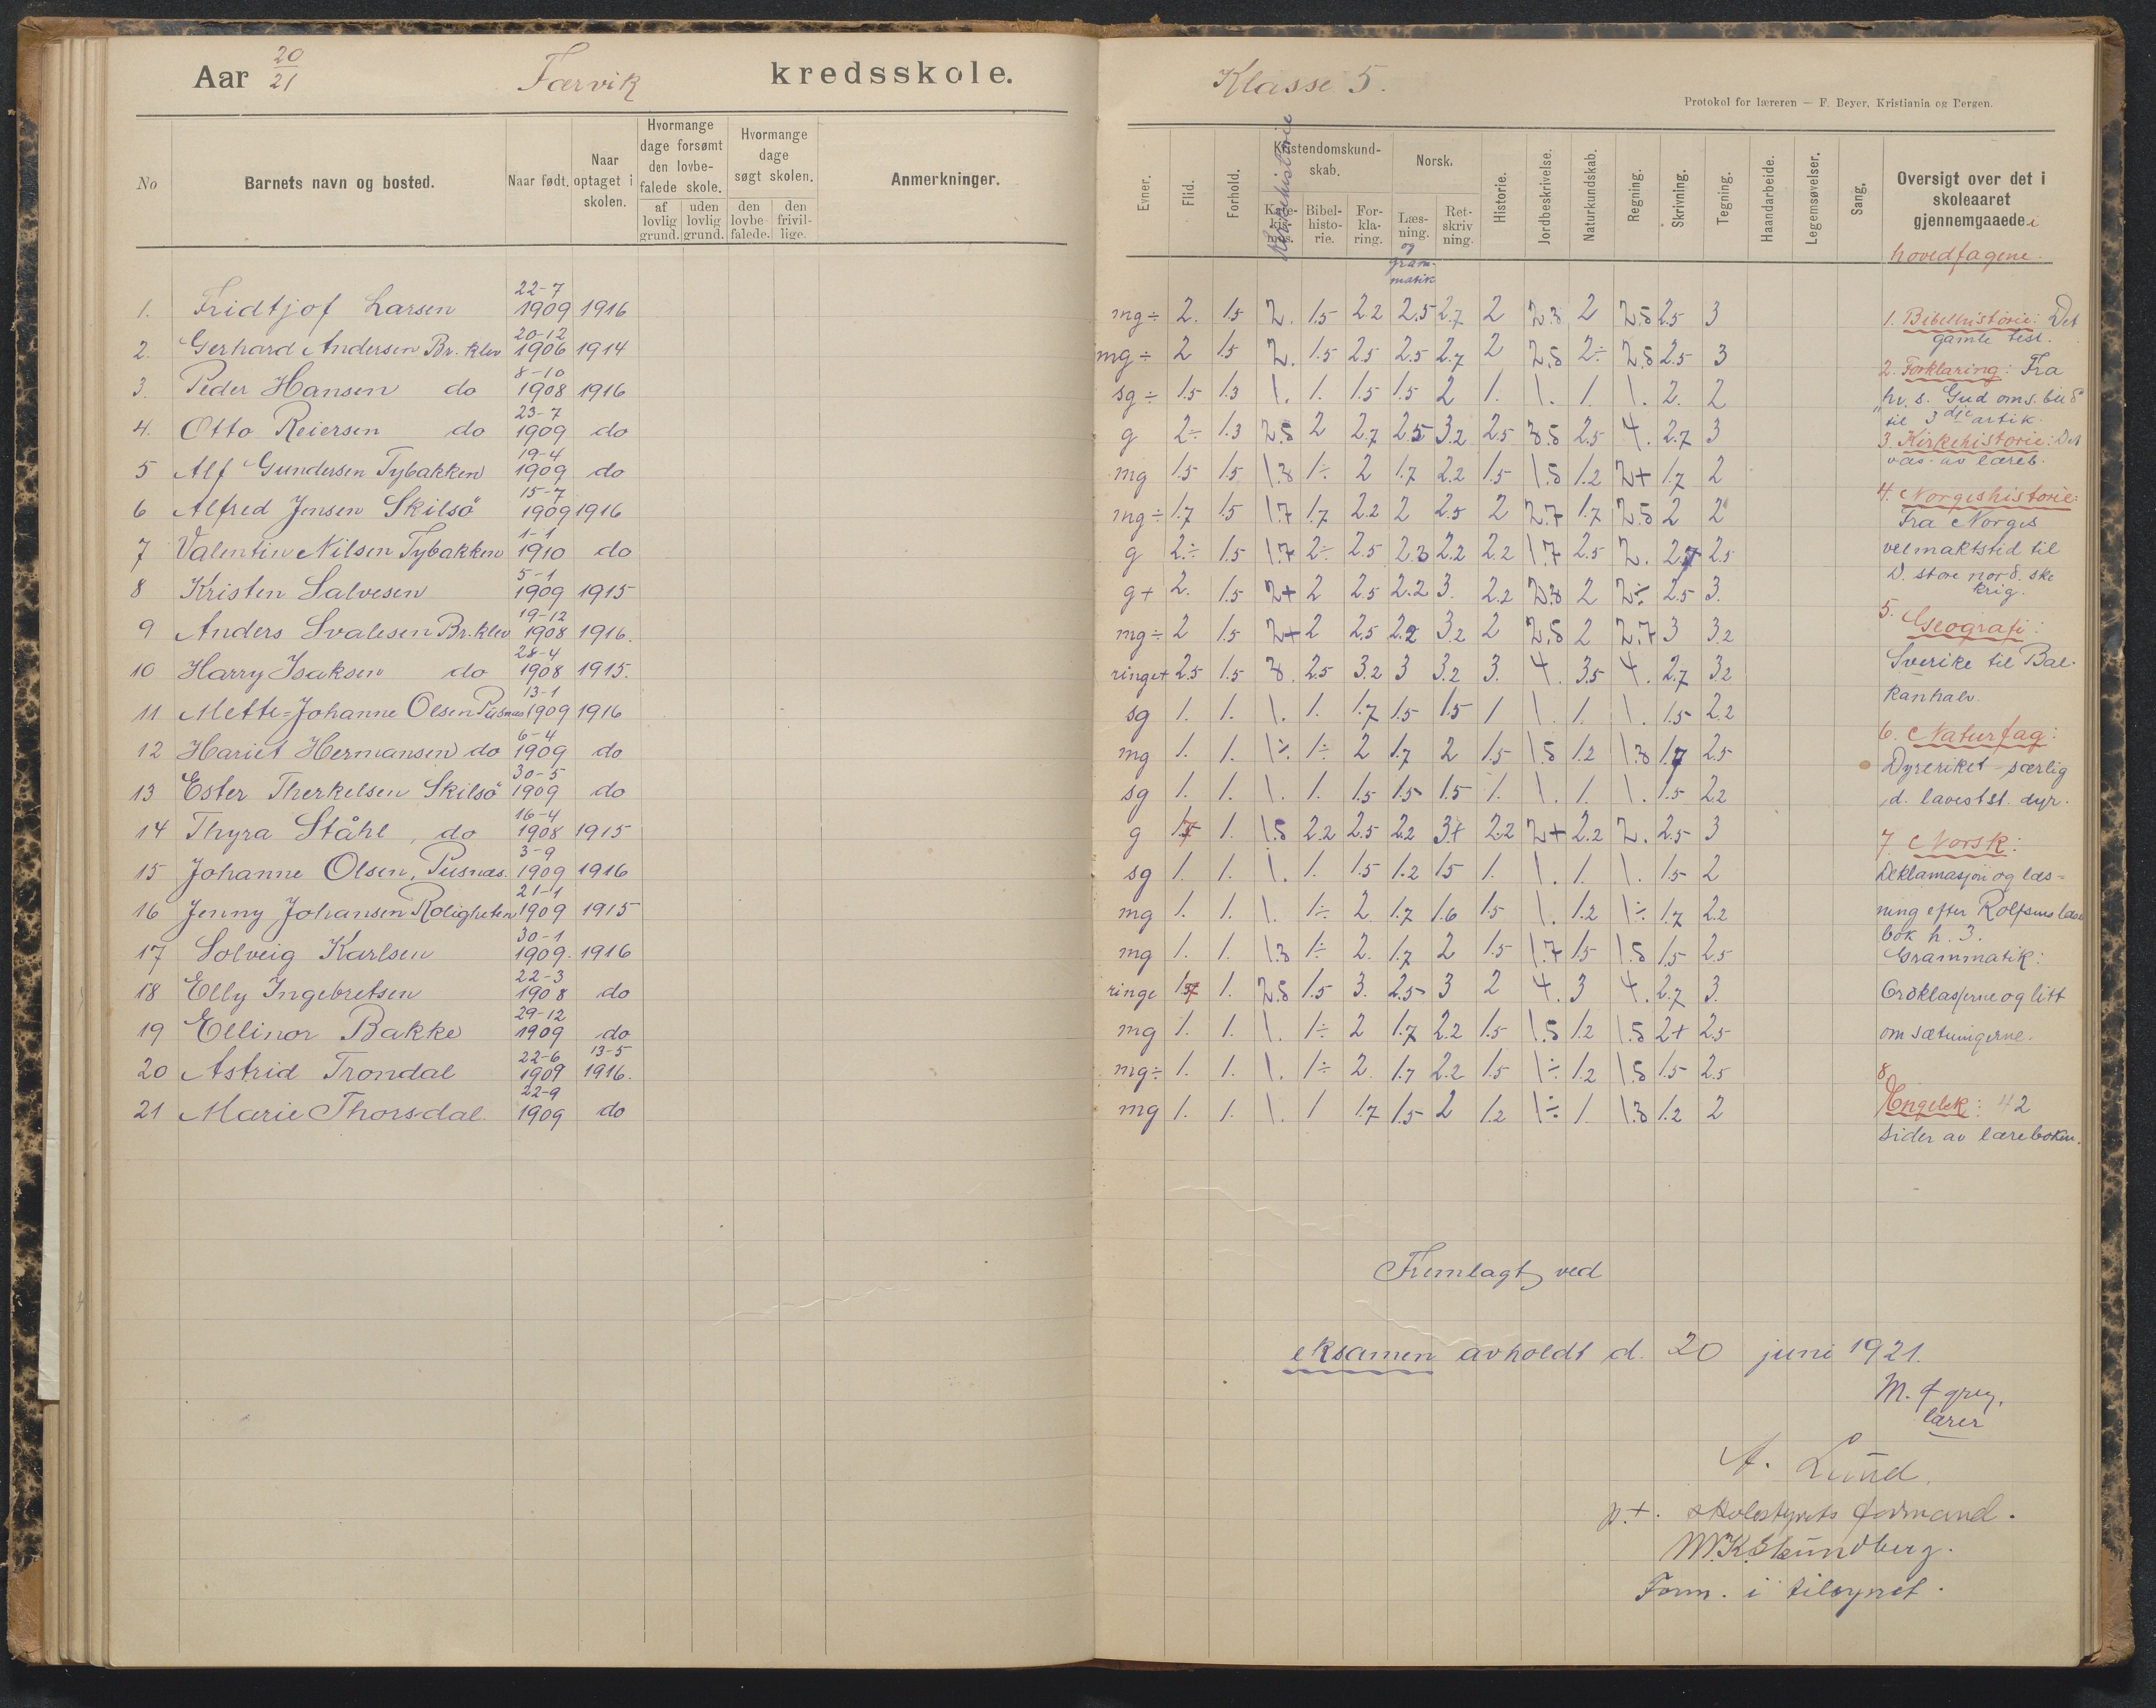 Aar 20/21 Færvik kredsskole.
No Barnets navn og bosted. Naar født. Naar optaget i skolen. Hvormange dage forsømt den lovbefalede skole. af lovlig grund. uden lovlig grund. Hvormange dage søgt skolen. den lovbefalede. den frivillige. Anmerkninger.
1. Fridtjof Larsen 22-7 1909 1916
2. Gerhard Andersen Br. klev 20-12 1906 1914
3. Peder Hansen do 8-10 1908 1916
4. Otto Reiersen do 23-7 1909 do
5 Alf Gundersen Tybakken 19-4 1909 do
6 Alfred Jensen Skilsö 15-7 1909 1916
7 Valentin Nilsen Tybakken 1-1 1910 do
8 Kristen Salvesen 5-1 1909 1915
9 Anders Svalesen Br. klev 19-12 1908 1916.
10 Harry Isaksen do 28-4 1908 1915.
11 Mette=Johanne Olsen Pusnes 13-1 1909 1916
12 Hariet Hermansen do 6-4 1909 do
13 Ester Therkelsen Skilsö 30-5 1909 do
14 Thyra Ståhl, do 16-4 1908 1915
15 Johanne Olsen, Pusnæs. 3-9 1909 1916
16 Jenny Johansen Roligheten 21-1 1909 1915
17 Solveig Karlsen 30-1 1909. 1916
18 Elly Ingebretsen 22-3 1908 do
19 Ellinor Bakke 29-12 1909 do
20 Astrid Trondal 22-6 1909 13-5 1916.
21 Marie Thorsdal. 22-9 1909 do
Klasse 5.
Protokol for læreren — F. Beyer. Kristiania og Bergen.
Evner. Flid. Forhold. Kristendomskundskab. Kirkehistorie Bibelhistorie. Forklaring. Norsk. Læsning. og grammatik Retskrivning. Historie. Jordbeskrivelse. Naturkundskab. Regning. Skrivning. Tegning. Haandarbeide. Legemsøvelser. Sang. Oversigt over det i skoleaaret gjennemgaaede i hovedfagene.
mg÷ 2. 1.5 2. 1.5 2.2 2.5 2.7 2 2.3 2 2.5 2.5 3
mg÷ 2 1.5 2. 1.5 2.5 2.5 2.7 2 2.5 2÷ 2.5 2.5 3
sg÷ 1.5 1.3 1. 1. 1.5 1.5 2 1. 1. 1. 1. 2. 2
g 2÷ 1.3 2.5 2 2.7 2.5 3.2 2.5 3.5 2.5 4. 2.7 3
mg 1.5 1.5 1.3 1÷ 2 1.7 2.2 1.5 1.5 1.2 2+ 1.7 2
mg÷ 1.7 1.5 1.7 1.7 2.2 2 2.5 2 2.7 1.7 2.5 2 2
g 2÷ 1.5 1.7 2÷ 2.5 2.3 2.2 2.2 1.7 2.5 2. 2.7 2.5
g+ 2. 1.5 2+ 2 2.5 2.2 3. 2.2 2.3 2 2÷ 2.5 3.
mg÷ 2 1.5 2+ 2 2.5 2.2 3.2 2 2.5 2 2.7 3 3.2
ringe+ 2.5 1.5 3. 2.5 3.2 3 3.2 3. 4. 3.5 4. 2.7 3.2
sg 1. 1. 1. 1. 1.7 1.5 1.5 1 1. 1. 1. 1.5 2.2
mg 1. 1. 1÷ 1÷ 2 1.7 2 1.5 1.5 1.2 1.3 1.7 2.5
sg 1. 1. 1. 1. 1.5 1.5 1.5 1. 1. 1. 1. 1.5 2.2
g 1. 1.5 2.2 2.5 2.2 3+ 2.2 2+ 2.2 2. 2.5 3
sg 1. 1. 1. 1. 1.5 1.2 1.5 1. 1. 1. 1. 1.5 2
mg 1. 1. 1. 1÷ 2. 1.7 1.6 1.5 1. 1.2 1÷ 1.7 2.2
mg 1. 1. 1.3 1÷ 2. 1.7 2 1.5 1.7 1.5 1.5 1.5 2.5
ringe 1. 2.5 1.5 3. 2.5 3 2 4. 3 4. 2.7 3.
mg 1. 1. 1. 1÷ 2 1.7 2.2 1.5 1.5 1.2 1.5 2+ 2.5
mg÷ 1. 1. 1. 1÷ 2. 1.7 2.2 1.5 1÷ 1.2 1.5 1.5 2.5
mg 1. 1. 1. 1 1.7 1.5 2 1.2 1÷ 1. 1.3 1.2 2
1. Bibelhistorie: Det
gamle test.
2. Forklaring: Fra
"hv. s. Gud oms. bud"
til 3die artik.
3. Kirkehistorie: Det
væs. av læreb.
4. Norgeshistorie:
Fra Norges
velmaktstid til
D. store nord. ske
krig.
5. Geografi:
Sverike til Bal-
kanhalv.
6. Naturfag:
Dyreriket særlig
d. lavest st. dyr.
7 Norsk:
Deklamasjon og læs=
ning efter Rolfsens læse
bok h. 3.
Grammatik:
Ordklasserne og litt
om sætningerne.
8.
Engelsk: 42
sider av læreboken.
Fremlagt ved
eksamen avholdt d. 20 juni 1921.
M.
lærer
A. Lund.
p.t. skolestyrets formand.
Form. i tilsynet.